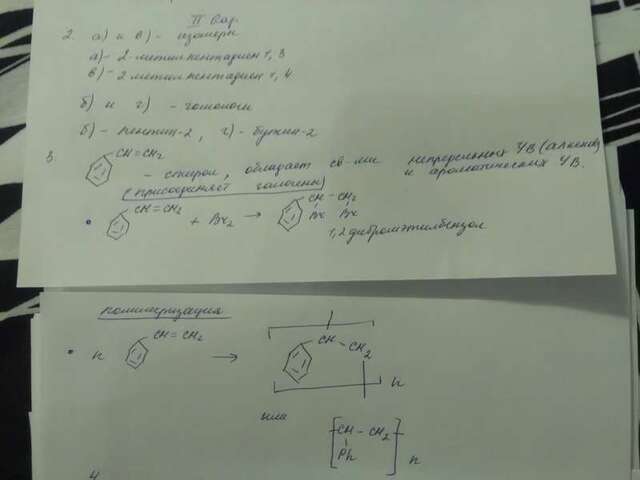 II Вар.
2. а) и в) - изомеры
а) - 2-метилпентадиен 1,3
в) - 2 метилпентадиен 1,4
б) и г) - гомологи
б) - пентин-2, г) - бутин-2
3. CH=CH2 - стирол, обладает св-ми непредельных УВ (алкенов) и ароматических УВ.
(присоединяет галогены)
• CH=CH2 + Br2 → CH-CH2
Br Br
1,2 дибромэтилбензол
полимеризация
• n CH=CH2 → CH-CH2 n
или
[-CH-CH2-] n
Ph
4.